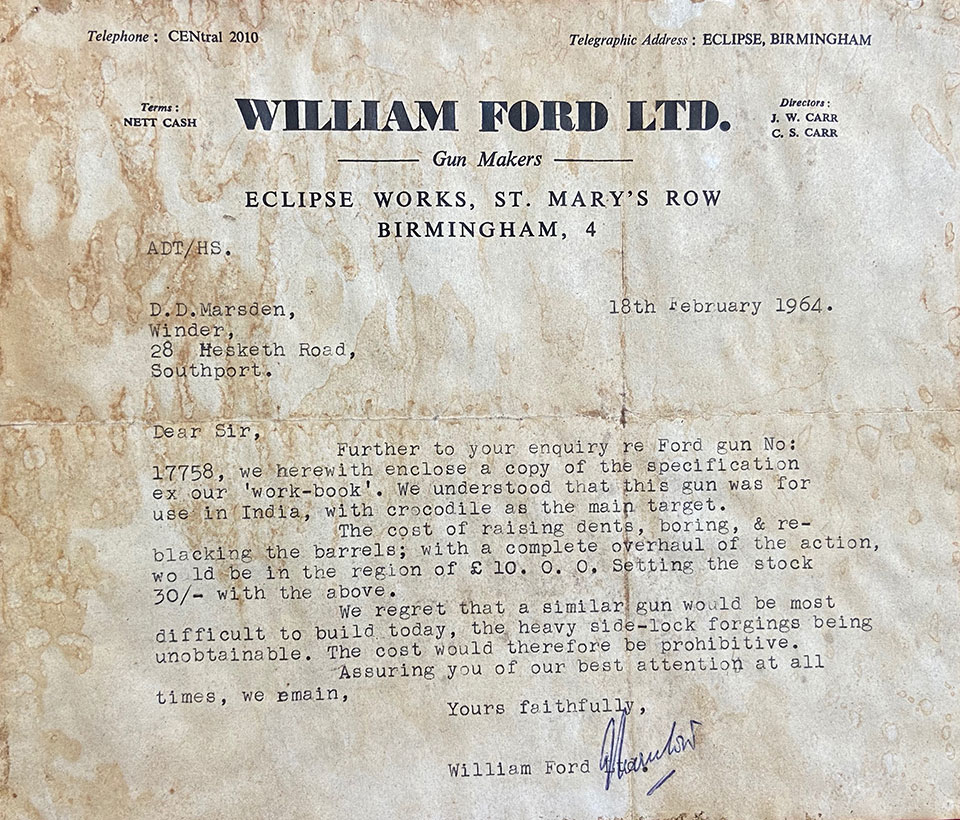 Telephone : CENtral 2010
Telegraphic Address : ECLIPSE, BIRMINGHAM
Terms :
NETT CASH
WILLIAM FORD LTD.
Directors :
J. W. CARR
C. S. CARR
Gun Makers
ECLIPSE WORKS, ST. MARY'S ROW
BIRMINGHAM, 4
ADT/HS.
D.D.Marsden,
18th February 1964.
Winder,
28 Hesketh Road,
Southport.
Dear Sir,
Further to your enquiry re Ford gun No:
17758, we herewith enclose a copy of the specification
ex our 'work-book'. We understood that this gun was for
use in India, with crocodile as the main target.
The cost of raising dents, boring, & re-
blacking the barrels; with a complete overhaul of the action,
wo ld be in the region of £ 10. 0. 0. Setting the stock
30/- with the above.
We regret that a similar gun would be most
difficult to build today, the heavy side-lock forgings being
unobtainable. The cost would therefore be prohibitive.
Assuring you of our best attention at all
times, we emain,
Yours faithfully,
William Ford